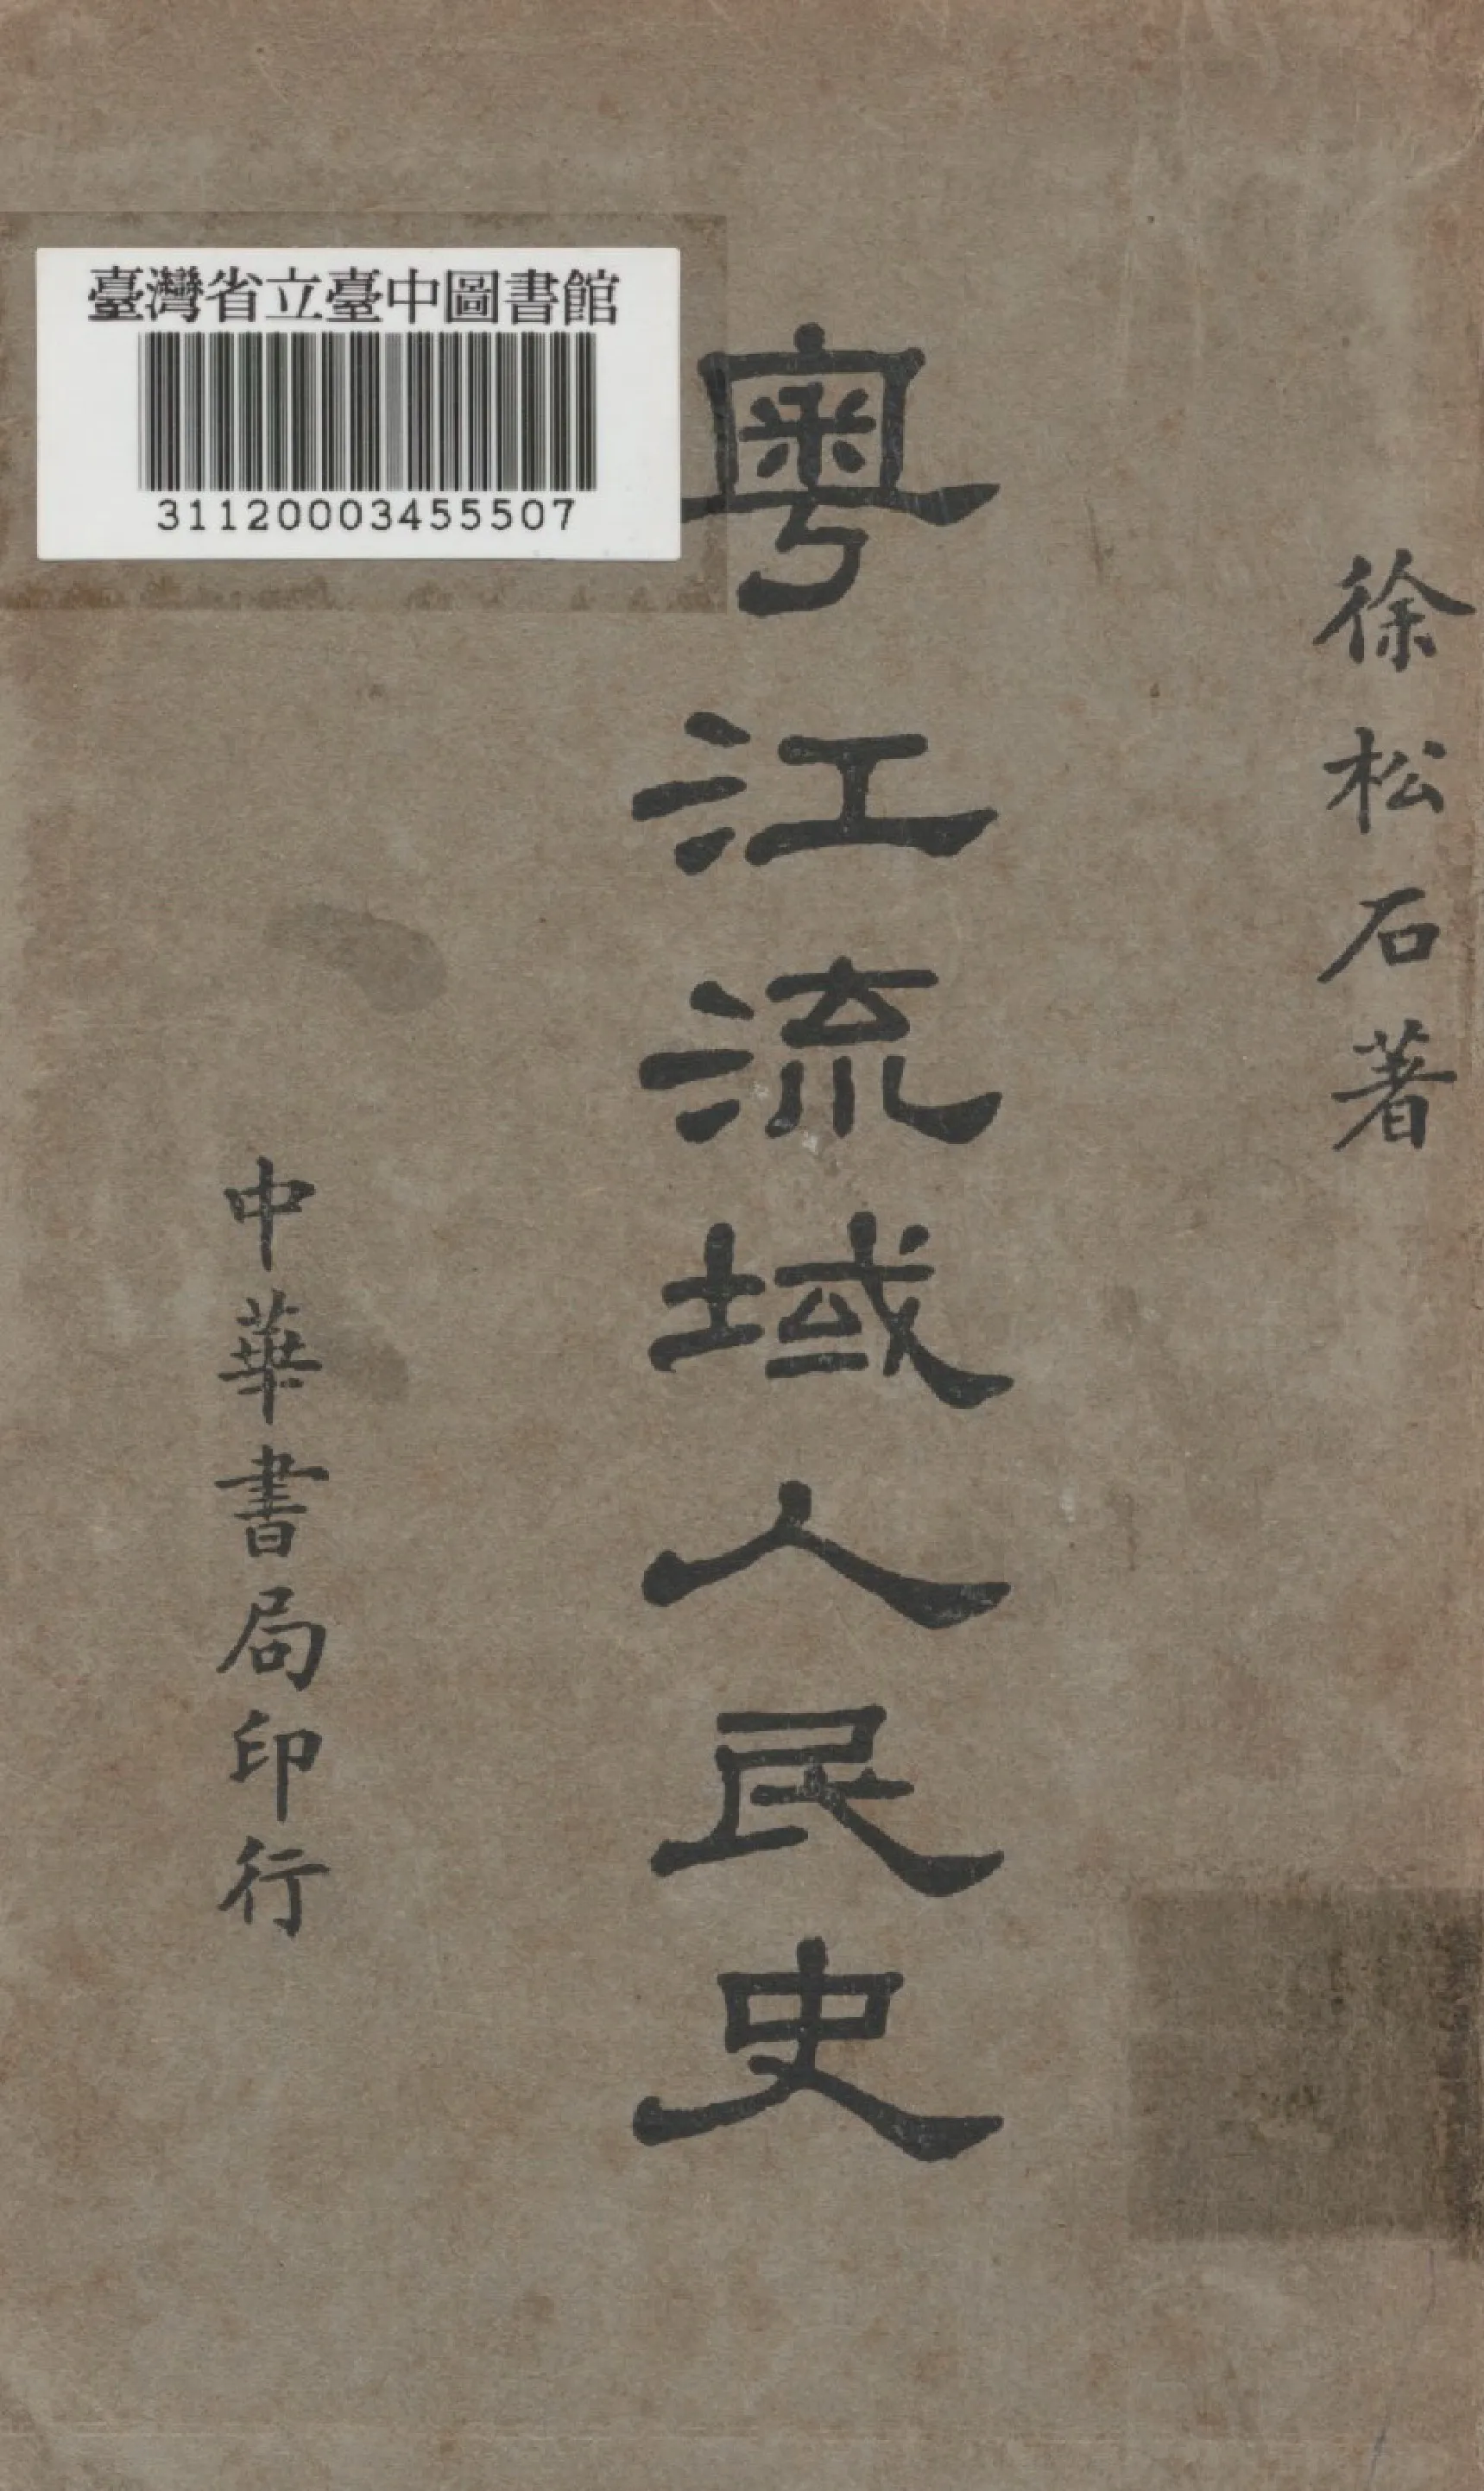 臺灣省立臺中圖書館
31120003455507
徐松石著
粵江流域人民史
中華書局印行